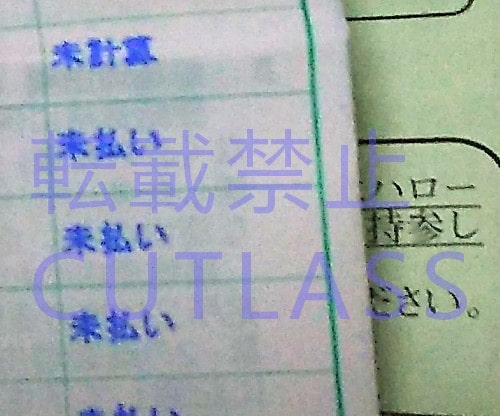 未計算
未払い
転載禁止
ハロー
持参し
未払い
CUTLASS
ださい。
未払い
未払い